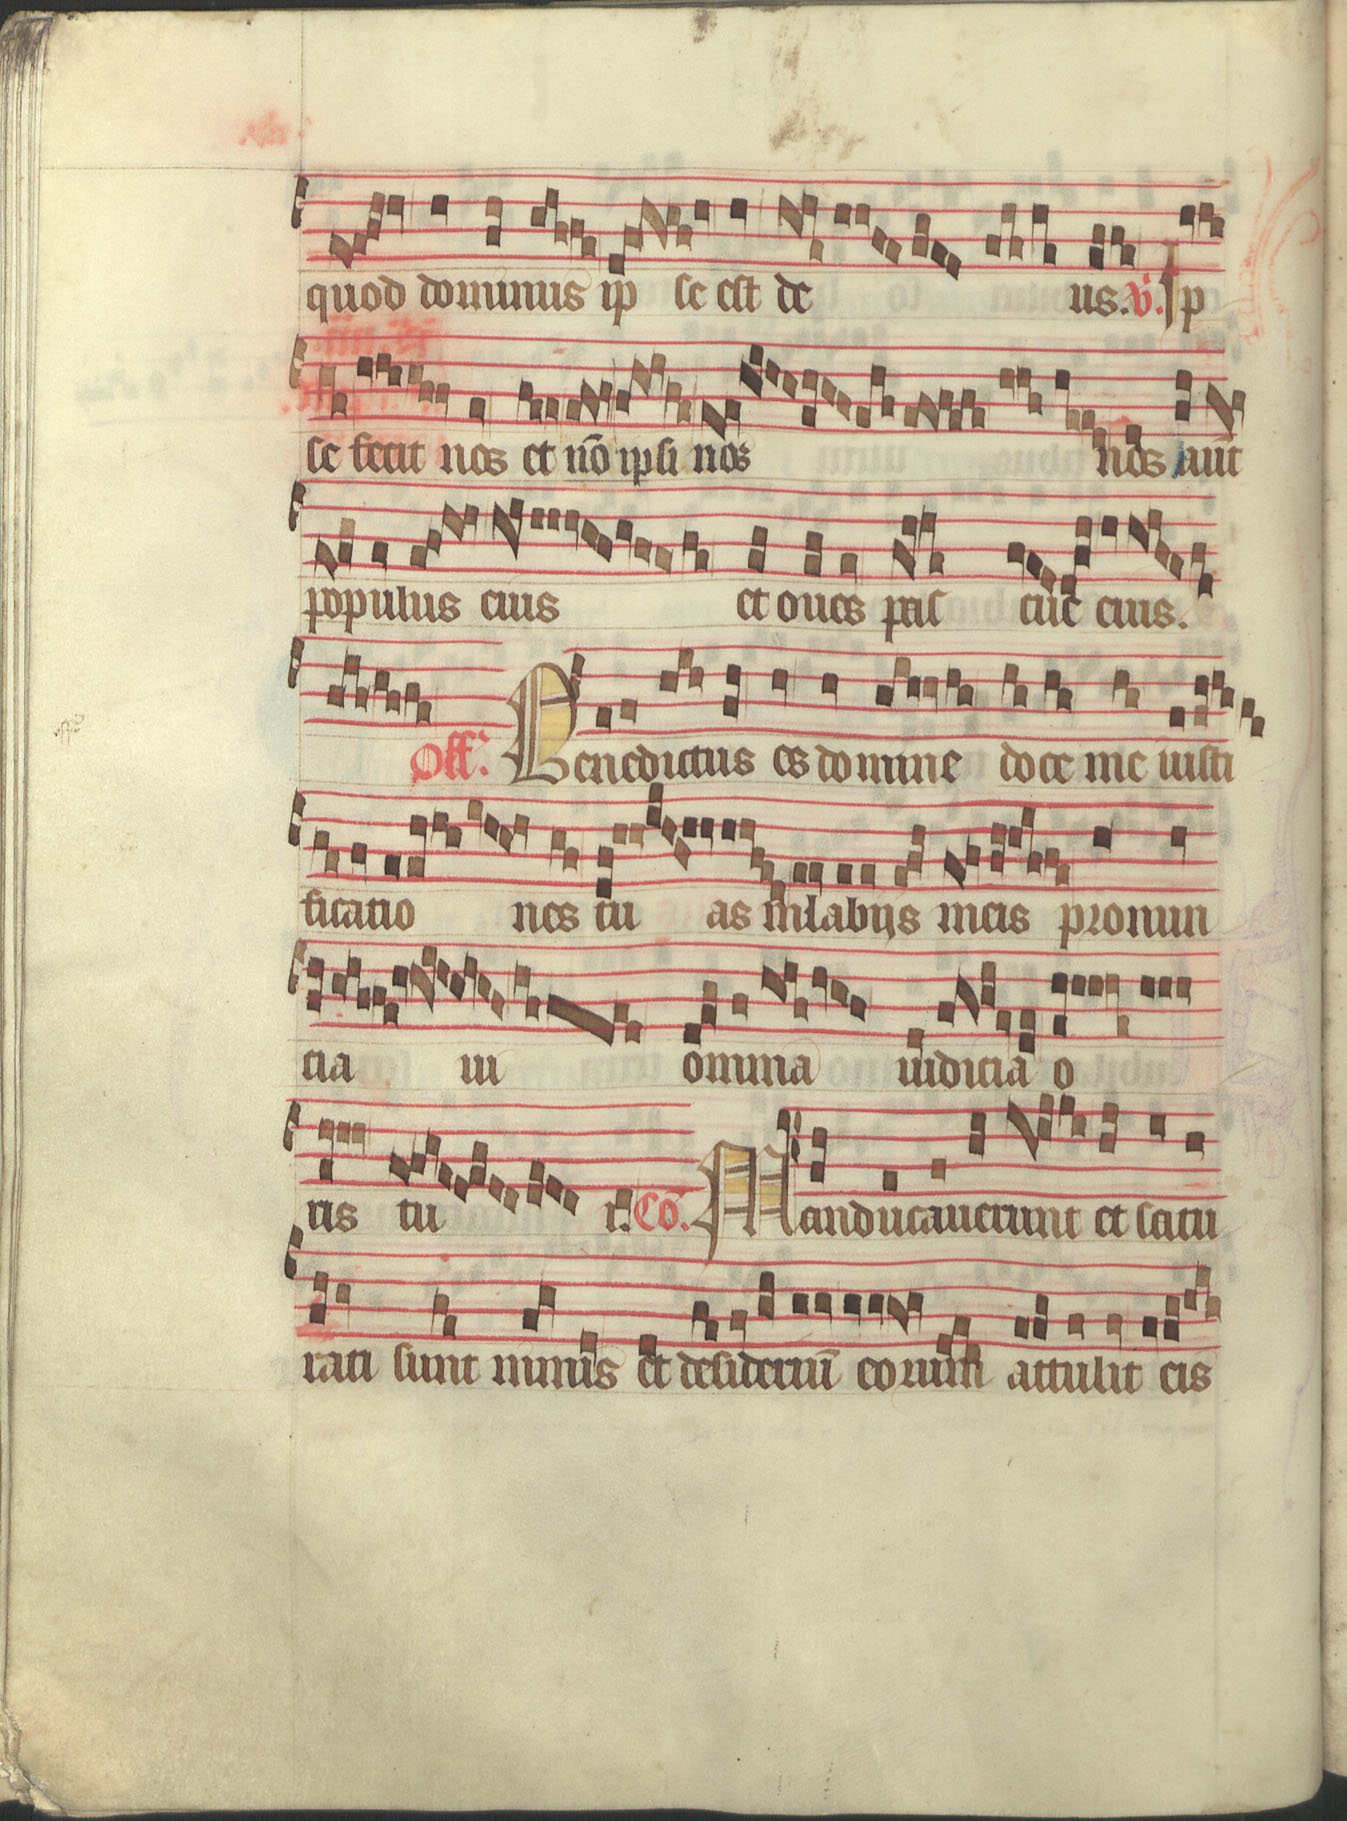 quod dominus ip se est de us. v̄. Ip
se fecit nos et nō ipsi nos nos aūt
populus eius et oues pasc cuē eius.
Off. Benedictus es domine doce me iusti
ficatio nes tu as in labijs meis pronun
cia ui omnia iudicia o
ris tu i. Cō. Manducauerunt et satu
rati sunt nimis et desideriū eorum attulit eis